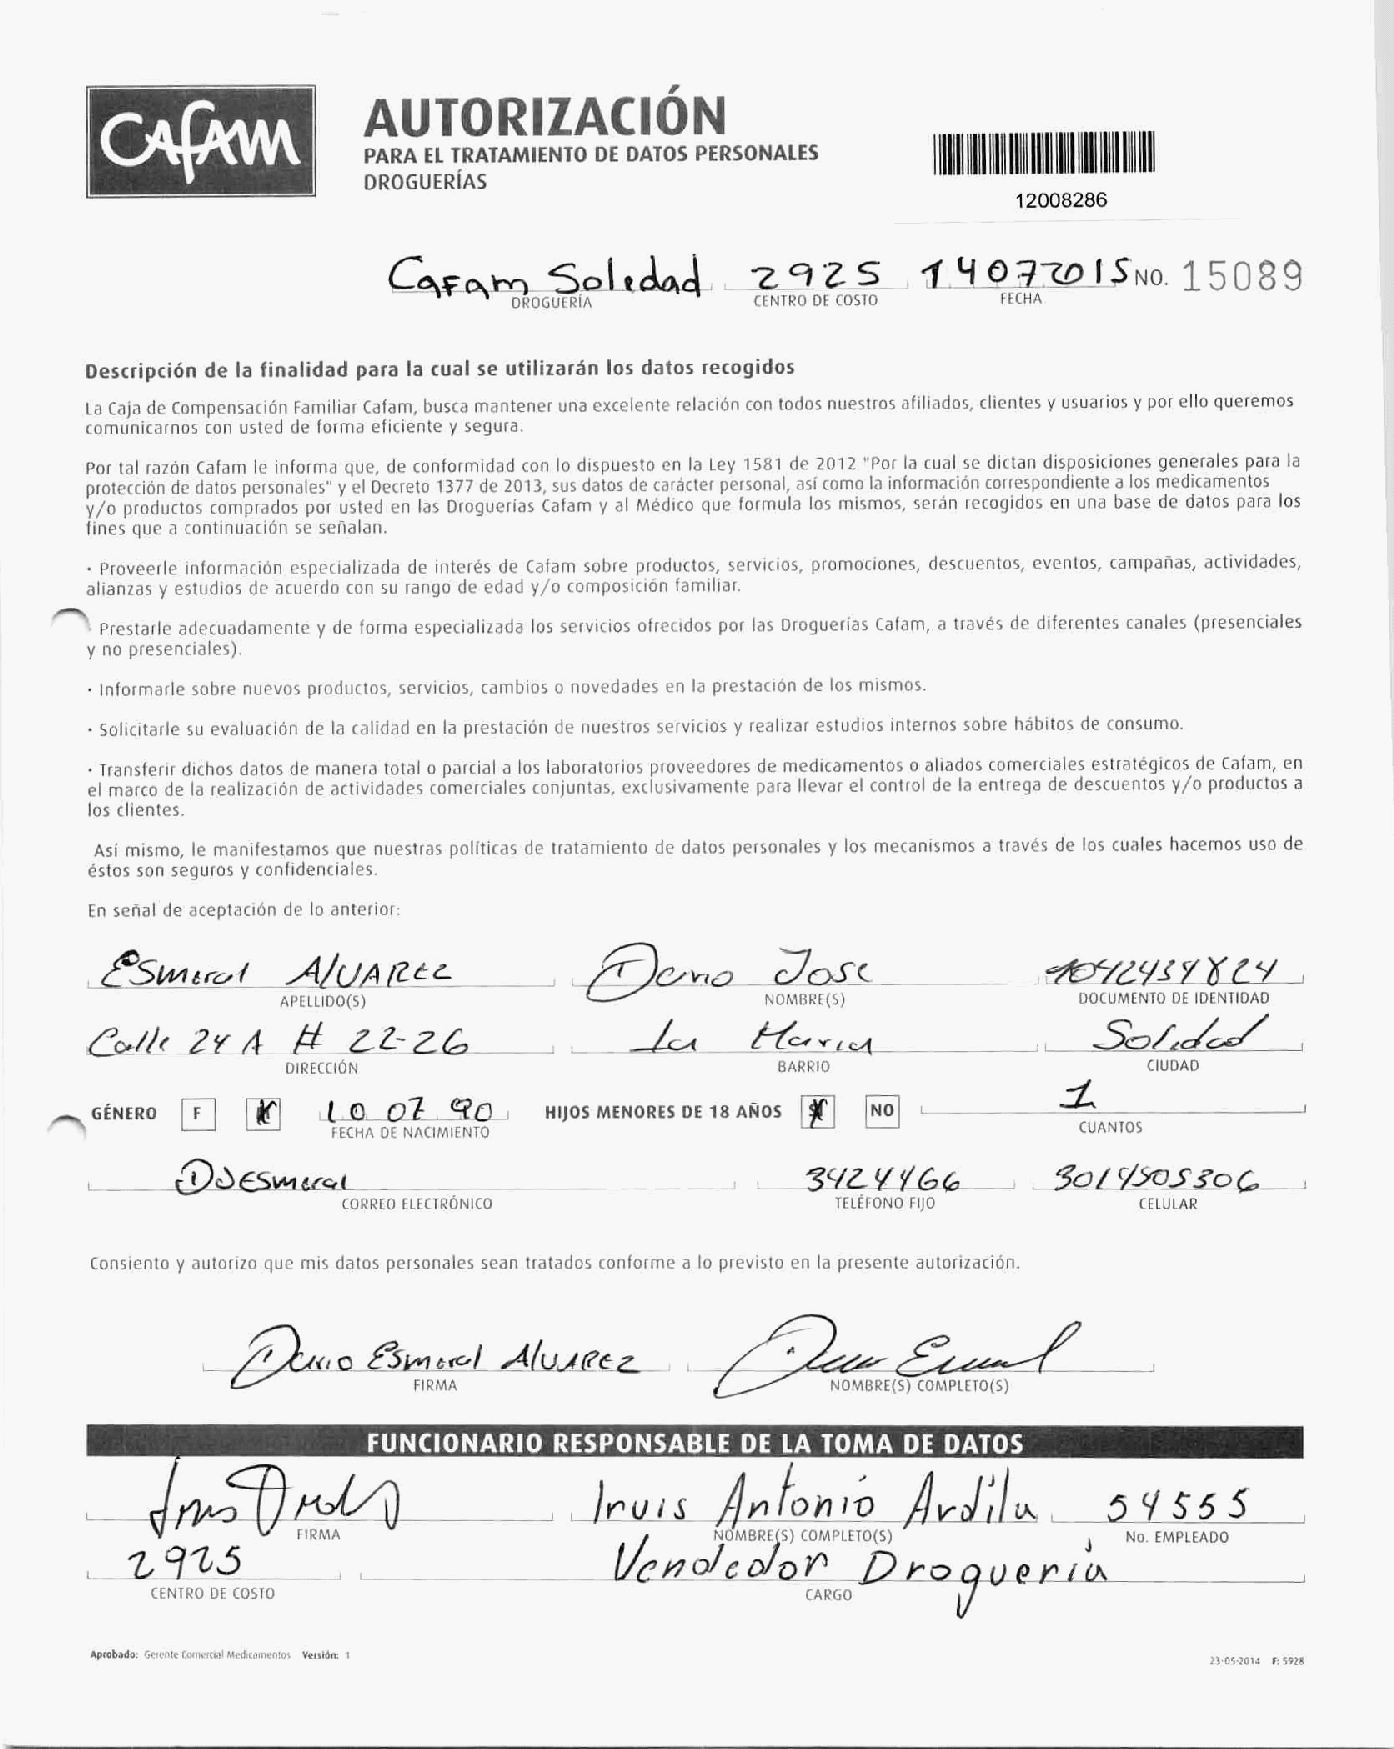 CAFAM
AUTORIZACIÓN
PARA EL TRATAMIENTO DE DATOS PERSONALES
DROGUERÍAS
12008286
Cafam Soledad 2925 14072015 NO. 15089
DROGUERÍA CENTRO DE COSTO FECHA
Descripción de la finalidad para la cual se utilizarán los datos recogidos
La Caja de Compensación Familiar Cafam, busca mantener una excelente relación con todos nuestros afiliados, clientes y usuarios y por ello queremos
comunicarnos con usted de forma eficiente y segura.
Por tal razón Cafam le informa que, de conformidad con lo dispuesto en la Ley 1581 de 2012 "Por la cual se dictan disposiciones generales para la
protección de datos personales" y el Decreto 1377 de 2013, sus datos de carácter personal, así como la información correspondiente a los medicamentos
y/o productos comprados por usted en las Droguerías Cafam y al Médico que formula los mismos, serán recogidos en una base de datos para los
fines que a continuación se señalan.
· Proveerle información especializada de interés de Cafam sobre productos, servicios, promociones, descuentos, eventos, campañas, actividades,
alianzas y estudios de acuerdo con su rango de edad y/o composición familiar.
· Prestarle adecuadamente y de forma especializada los servicios ofrecidos por las Droguerías Cafam, a través de diferentes canales (presenciales
y no presenciales).
· Informarle sobre nuevos productos, servicios, cambios o novedades en la prestación de los mismos.
· Solicitarle su evaluación de la calidad en la prestación de nuestros servicios y realizar estudios internos sobre hábitos de consumo.
· Transferir dichos datos de manera total o parcial a los laboratorios proveedores de medicamentos o aliados comerciales estratégicos de Cafam, en
el marco de la realización de actividades comerciales conjuntas, exclusivamente para llevar el control de la entrega de descuentos y/o productos a
los clientes.
Así mismo, le manifestamos que nuestras políticas de tratamiento de datos personales y los mecanismos a través de los cuales hacemos uso de
éstos son seguros y confidenciales.
En señal de aceptación de lo anterior:
Esmeral AlvAREz Dario Jose
APELLIDO(S) NOMBRE(S) DOCUMENTO DE IDENTIDAD
Calle 24 A # 22-26 La Maria Soledad
DIRECCIÓN BARRIO CIUDAD
GÉNERO F 10 07 90 HIJOS MENORES DE 18 AÑOS NO 1
FECHA DE NACIMIENTO CUANTOS
DJEsmeral 3424466 3014505306
CORREO ELECTRÓNICO TELÉFONO FIJO CELULAR
Consiento y autorizo que mis datos personales sean tratados conforme a lo previsto en la presente autorización.
Dario Esmeral AlvARez
FIRMA NOMBRE(S) COMPLETO(S)
FUNCIONARIO RESPONSABLE DE LA TOMA DE DATOS
Irvis Antonio Ardila 54555
FIRMA NOMBRE(S) COMPLETO(S) No. EMPLEADO
2925 Vendedor Drogueria
CENTRO DE COSTO CARGO
Aprobado: Gerente Comercial Medicamentos Versión: 1 23-05-2014 F: 5928